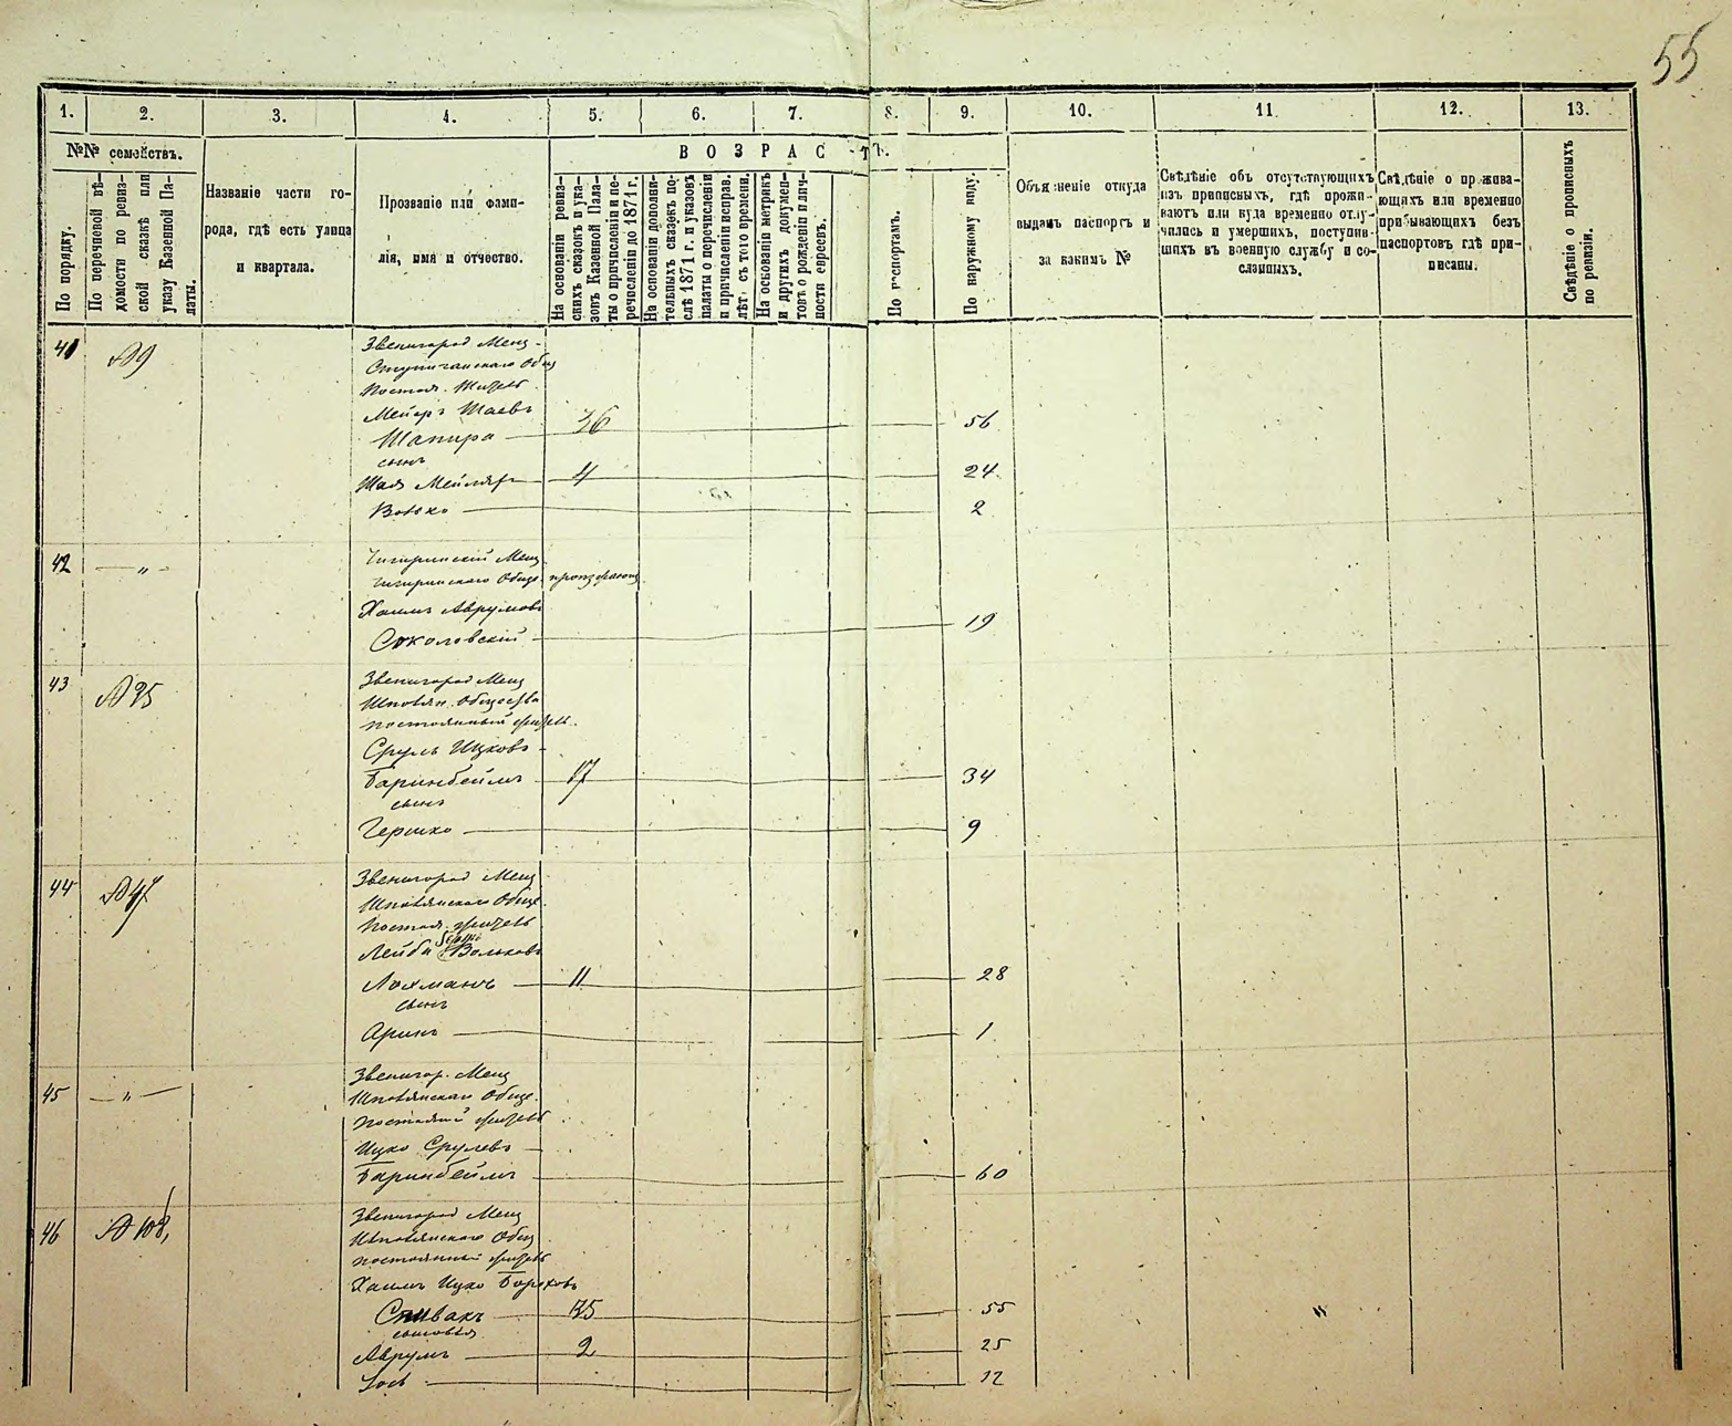 55
1. 2. 3. 4. 5. 6. 7. 8. 9. 10. 11. 12. 13.
№№ семействъ.
По порядку.
По перечневой вѣ-
домости по ревиз-
ской сказкѣ или
указу Казенной Па-
латы.
Названіе части го-
рода, гдѣ есть улица
и квартала.
Прозваніе или фами-
лія, имя и отчество.
ВОЗРАСТЪ.
На основаніи ревиз-
скихъ сказокъ и ука-
зовъ Казенной Пала-
ты о причисленіи и пе-
речисленіи до 1871 г.
На основаніи дополни-
тельныхъ сказокъ по-
слѣ 1871 г. и указовъ
палаты о перечисленіи
и причисленіи исправ.
лѣтъ съ того времени.
На основаніи метрикъ
и другихъ докумен-
товъ о рожденіи и лич-
ности евреевъ.
По паспортамъ.
По наружному виду.
Объясненіе откуда
выданъ паспортъ и
за какимъ №
Свѣдѣніе объ отсутствующихъ
изъ приписныхъ, гдѣ прожи-
ваютъ или куда временно отлу-
чились и умершихъ, поступив-
шихъ въ военную службу и со-
сланныхъ.
Свѣдѣніе о прожива-
ющихъ или временно
прибывающихъ безъ
паспортовъ гдѣ при-
писаны.
Свѣдѣніе о прописныхъ
по ревизіи.
41 №9 Звенигород Мещ
Общ
Постоя. Житель
Мейеръ Шаевъ
Шапира 36 56
сынъ
Шая 4 24
Волько 2
42 — " — Чигиринскій Мещ
Чигиринскаго Обще.
Хаимъ Аврумовъ
Соколовскій 19
43 №35 Звенигород Мещ
Шполян. Общества
постоянный житель
Сруль Ицковъ
Баринбеймъ 17 34
сынъ
Гершко 9
44 №47 Звенигород Мещ
Шполянскаго Обще.
Постоя. житель
Лейба Вольковъ
Лохманъ 11 28
сынъ
Аринъ 1
45 — " — Звенигор. Мещ
Шполянскаго Обще.
постоянный житель
Ицко Срулевъ
Баринбеймъ 60
46 №108, Звенигород Мещ
Шполянскаго Общ
постоянный житель
Хаимъ Ицко Бороховъ
Спивакъ 35 55 "
сыновья
Аврумъ 2 25
Іось 12